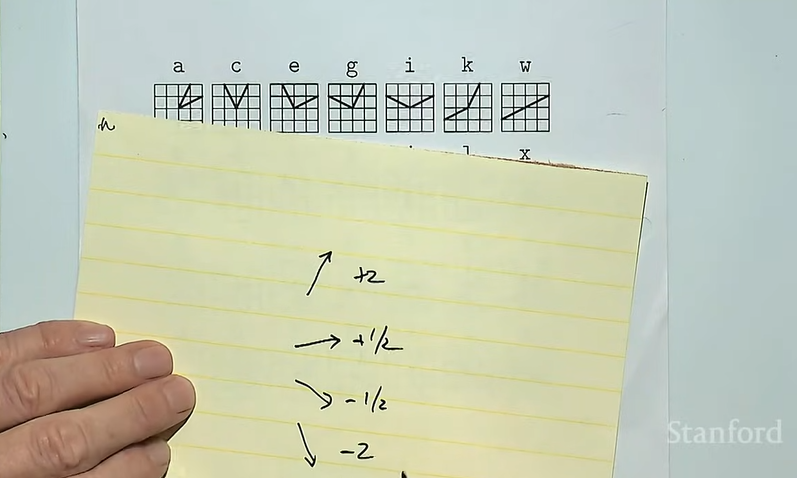 a c e g i k w
l x
+2
+1/2
-1/2
-2
Stanford